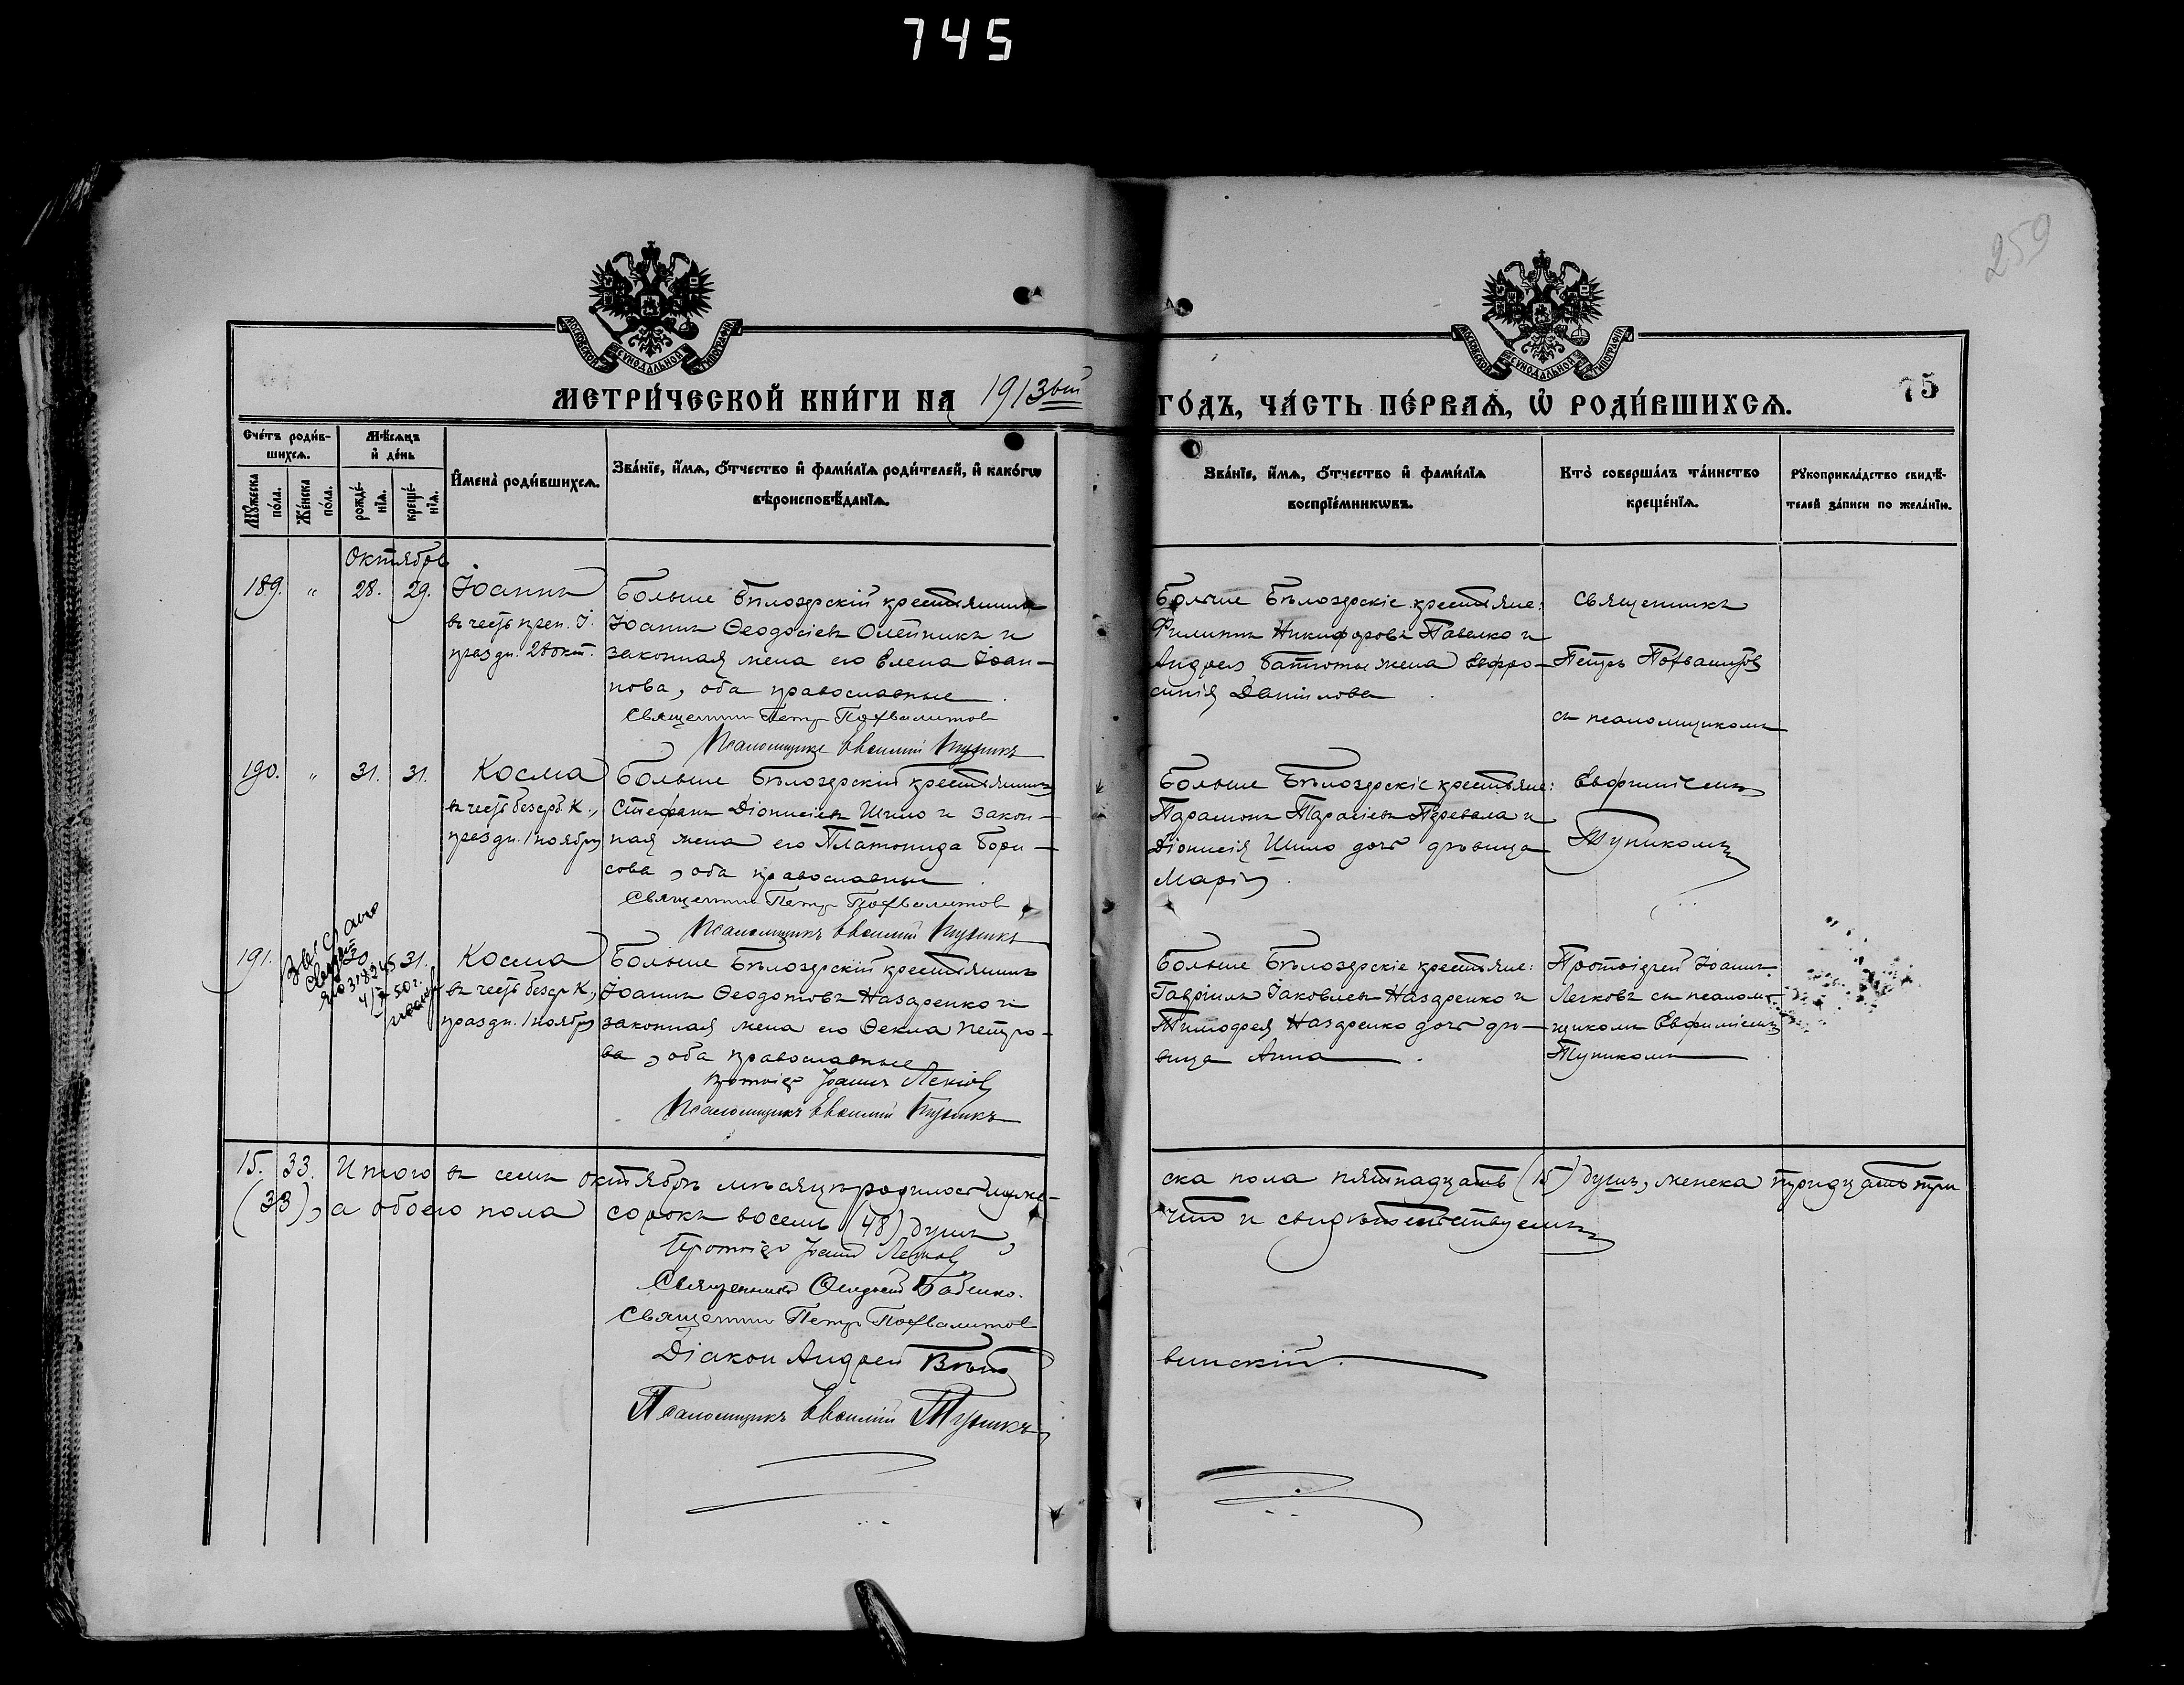 745
259
МОСКОВСКОЙ СѴНОДАЛЬНОЙ ТИПОГРАФІИ
МОСКОВСКОЙ СѴНОДАЛЬНОЙ ТИПОГРАФІИ
МЕТРИ́ЧЕСКОЙ КНИ́ГИ НА 1913ый ГО́ДЪ, ЧА́СТЬ ПЕ́РВАѦ, Ѡ РОДИ́ВШИХСѦ.
75
Сче́тъ роди́в-
шихсѧ.
Мѣ́сѧцъ
и҆ де́нь
Мꙋ́жеска по́ла.
Же́нска по́ла.
рожде́-
нїѧ.
креще́-
нїѧ.
И҆мена̀ роди́вшихсѧ.
Зва́нїе, и҆́мѧ, ѻ҆́тчество и҆ фами́лїѧ роди́телей, и҆ како́гѡ
вѣроисповѣ́данїѧ.
Зва́нїе, и҆́мѧ, ѻ҆́тчество и҆ фами́лїѧ
воспрїе́мникѡвъ.
Кто̀ соверша́лъ та́инство
креще́нїѧ.
Рꙋкоприкла́дство свидѣ́-
телей за́писи по жела́нїю.
Октябрь
189. " 28. 29. Іоаннъ
въ честь преп. І.
праздн. 28 окт.
Больше Бѣлозерскій крестьянинъ
Іоаннъ Ѳеодосіевъ Олейникъ и
законная жена его Елена Іоан-
нова, оба православные.
Священник Петр Похвалитов
Псаломщикъ Евѳимій Тупикъ
Больше Бѣлозерскіе крестьяне:
Филиппъ Никифоровъ Павелко и
Андрея Батюты жена Евфро-
синія Даніилова
Священникъ
Петръ Похвалитов
съ псаломщикомъ
190. " 31. 31. Косма
въ честь безср. К.,
праздн. 1 ноября
Больше Бѣлозерскій крестьянинъ
Стефанъ Діонисіевъ Шило и закон-
ная жена его Платонида Бори-
сова, оба православные.
Священник Петр Похвалитов
Псаломщикъ Евѳимій Тупикъ
Больше Бѣлозерскіе крестьяне:
Парамонъ Тарасіевъ Перевала и
Діонисія Шило дочь дѣвица
Марія.
Евфиміемъ
Тупикомъ
191. 30 31. Косма
въ честь безср К.,
праздн. 1 ноября
Больше Бѣлозерскій крестьянинъ
Іоаннъ Ѳеодотовъ Назаренко и
законная жена его Ѳекла Петро-
ва, оба православные
Протоіер Іоаннъ Легков
Псаломщикъ Евѳимій Тупикъ
Больше Бѣлозерскіе крестьяне:
Гавріилъ Іаковлевъ Назаренко и
Тимофея Назаренко дочь дѣ-
вица Анна.
Протоіерей Іоаннъ
Легковъ съ псалом-
щикомъ Евфиміемъ
Тупикомъ.
15. 33. Итого въ семъ октябрѣ мѣсяцѣ родилось муже-
ска пола пятнадцать (15) душъ, женска тридцать три
(33), а обоего пола сорокъ восемь (48) душъ,
что и свидѣтельствуемъ
Протоіер Іоанн Легков
Священникъ Ѳеодосій Бабенко.
Священник Петр Похвалитов
Діакон Андрей
винскій.
Псаломщикъ Евѳимій Тупикъ